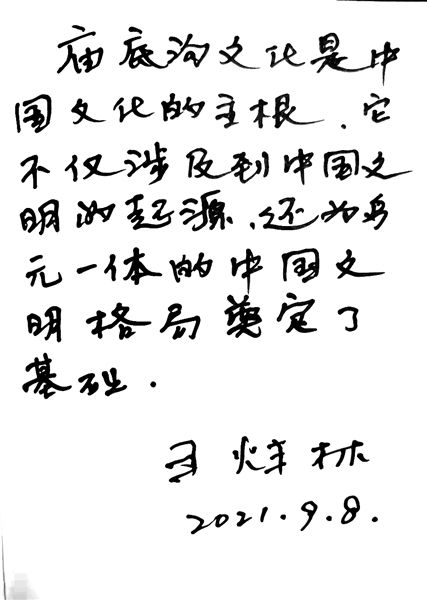 庙底沟文化是中
国文化的主根.它
不仅涉及到中国文
明的起源,还为多
元一体的中国文
明格局奠定了
基础.
王炜林
2021.9.8.